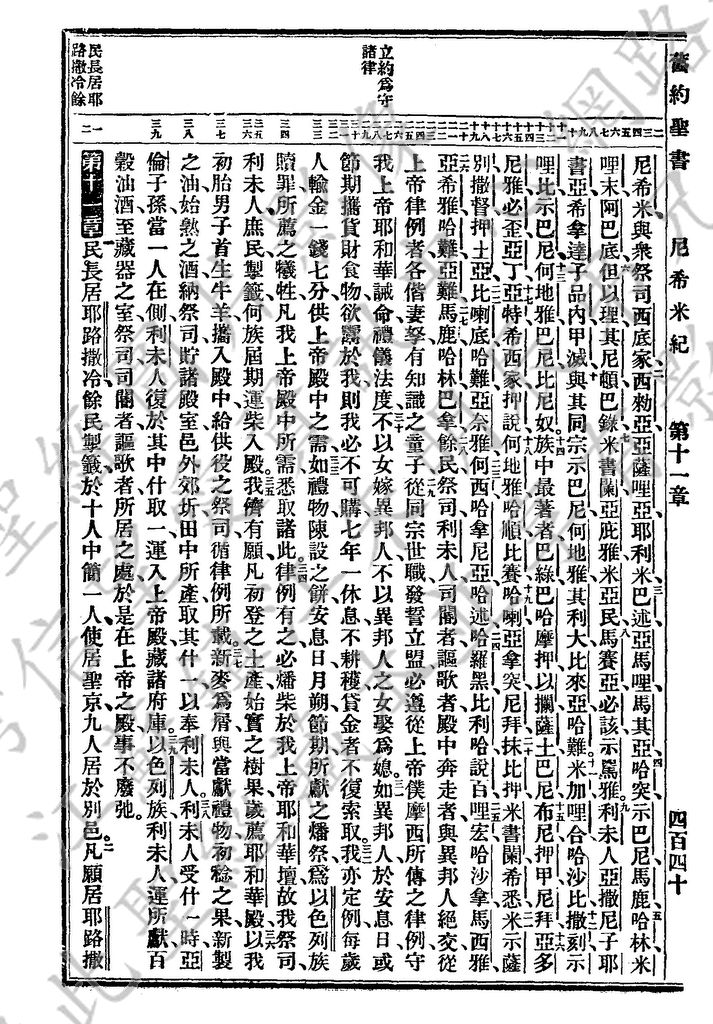 舊約聖書 尼希米紀 第十一章 四百四十
尼希米與衆祭司西底家西勑亞亞薩哩亞耶利米巴述亞馬哩馬其亞哈突示巴尼馬鹿哈林米
哩末阿巴底但以理其尼頓巴錄米書闌亞庇雅米亞民馬賽亞必該示罵雅利未人亞撒尼子耶
書亞希拿達子品內甲滅與其同宗示巴尼何地雅其利大比來亞哈難米加哩合哈沙比撒刻示
哩比示巴尼何地雅巴尼比尼奴族中最著者巴綠巴哈摩押以攔薩土巴尼布尼押甲尼拜亞多
尼雅必歪亞丁亞特希西家押說何地雅哈順比賽哈喇亞拿突尼拜抹比押米書闌希悉米示薩
別撒督押土亞比喇底哈難亞奈雅何西哈拿尼亞哈述哈羅黑比利哈說百哩宏哈沙拿馬西雅
亞希雅哈難亞難馬鹿哈林巴拿餘民祭司利未人司閽者謳歌者殿中奔走者與異邦人絕交從
上帝律例者各偕妻孥有知識之童子從同宗世職發誓立盟必遵從上帝僕摩西所傳之律例守
我上帝耶和華誡命禮儀法度不以女嫁異邦人不以異邦人之女娶爲媳如異邦人於安息日或
節期攜貨財食物欲鬻於我則我必不可購七年一休息不耕穫貸金者不復索取我亦定例每歲
人輸金一錢七分供上帝殿中之需如禮物陳設之餅安息日月朔節期所獻之燔祭爲以色列族
贖罪所薦之犧牲凡我上帝殿中所需悉取諸此律例有之必燔柴於我上帝耶和華壇故我祭司
利未人庶民製籤何族屆期運柴入殿我儕有願凡初登之土產始實之樹果歲薦耶和華殿以我
初胎男子首生牛羊攜入殿中給供役之祭司循律例所載新麥爲屑與當獻禮物初稔之果新製
之油始熱之酒納祭司貯諸殿室邑外郊圻田中所產取其什一以奉利未人利未人受什一時亞
倫子孫當一人在側利未人復於其中什取一運入上帝殿藏諸府庫以色列族利未人運所獻百
穀油酒至藏器之室祭司司閽者謳歌者所居之處於是在上帝之殿事不廢弛
第十一章 民長居耶路撒冷餘民製籤於十人中簡一人使居聖京九人居於別邑凡願居耶路撒
立約爲守
諸律
民長居耶
路撒冷餘